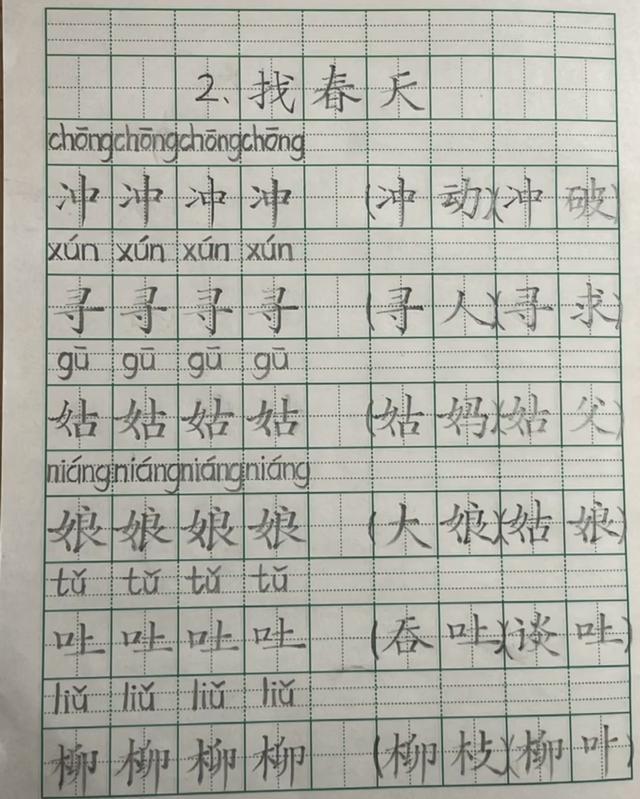 2、找春天
chōng chōng chōng chōng
冲 冲 冲 冲 (冲动)(冲破)
xún xún xún xún
寻 寻 寻 寻 (寻人)(寻求)
gū gū gū gū
姑 姑 姑 姑 (姑妈)(姑父)
niáng niáng niáng niáng
娘 娘 娘 娘 (大娘)(姑娘)
tǔ tǔ tǔ tǔ
吐 吐 吐 吐 (吞吐)(谈吐)
liǔ liǔ liǔ liǔ
柳 柳 柳 柳 (柳枝)(柳叶)